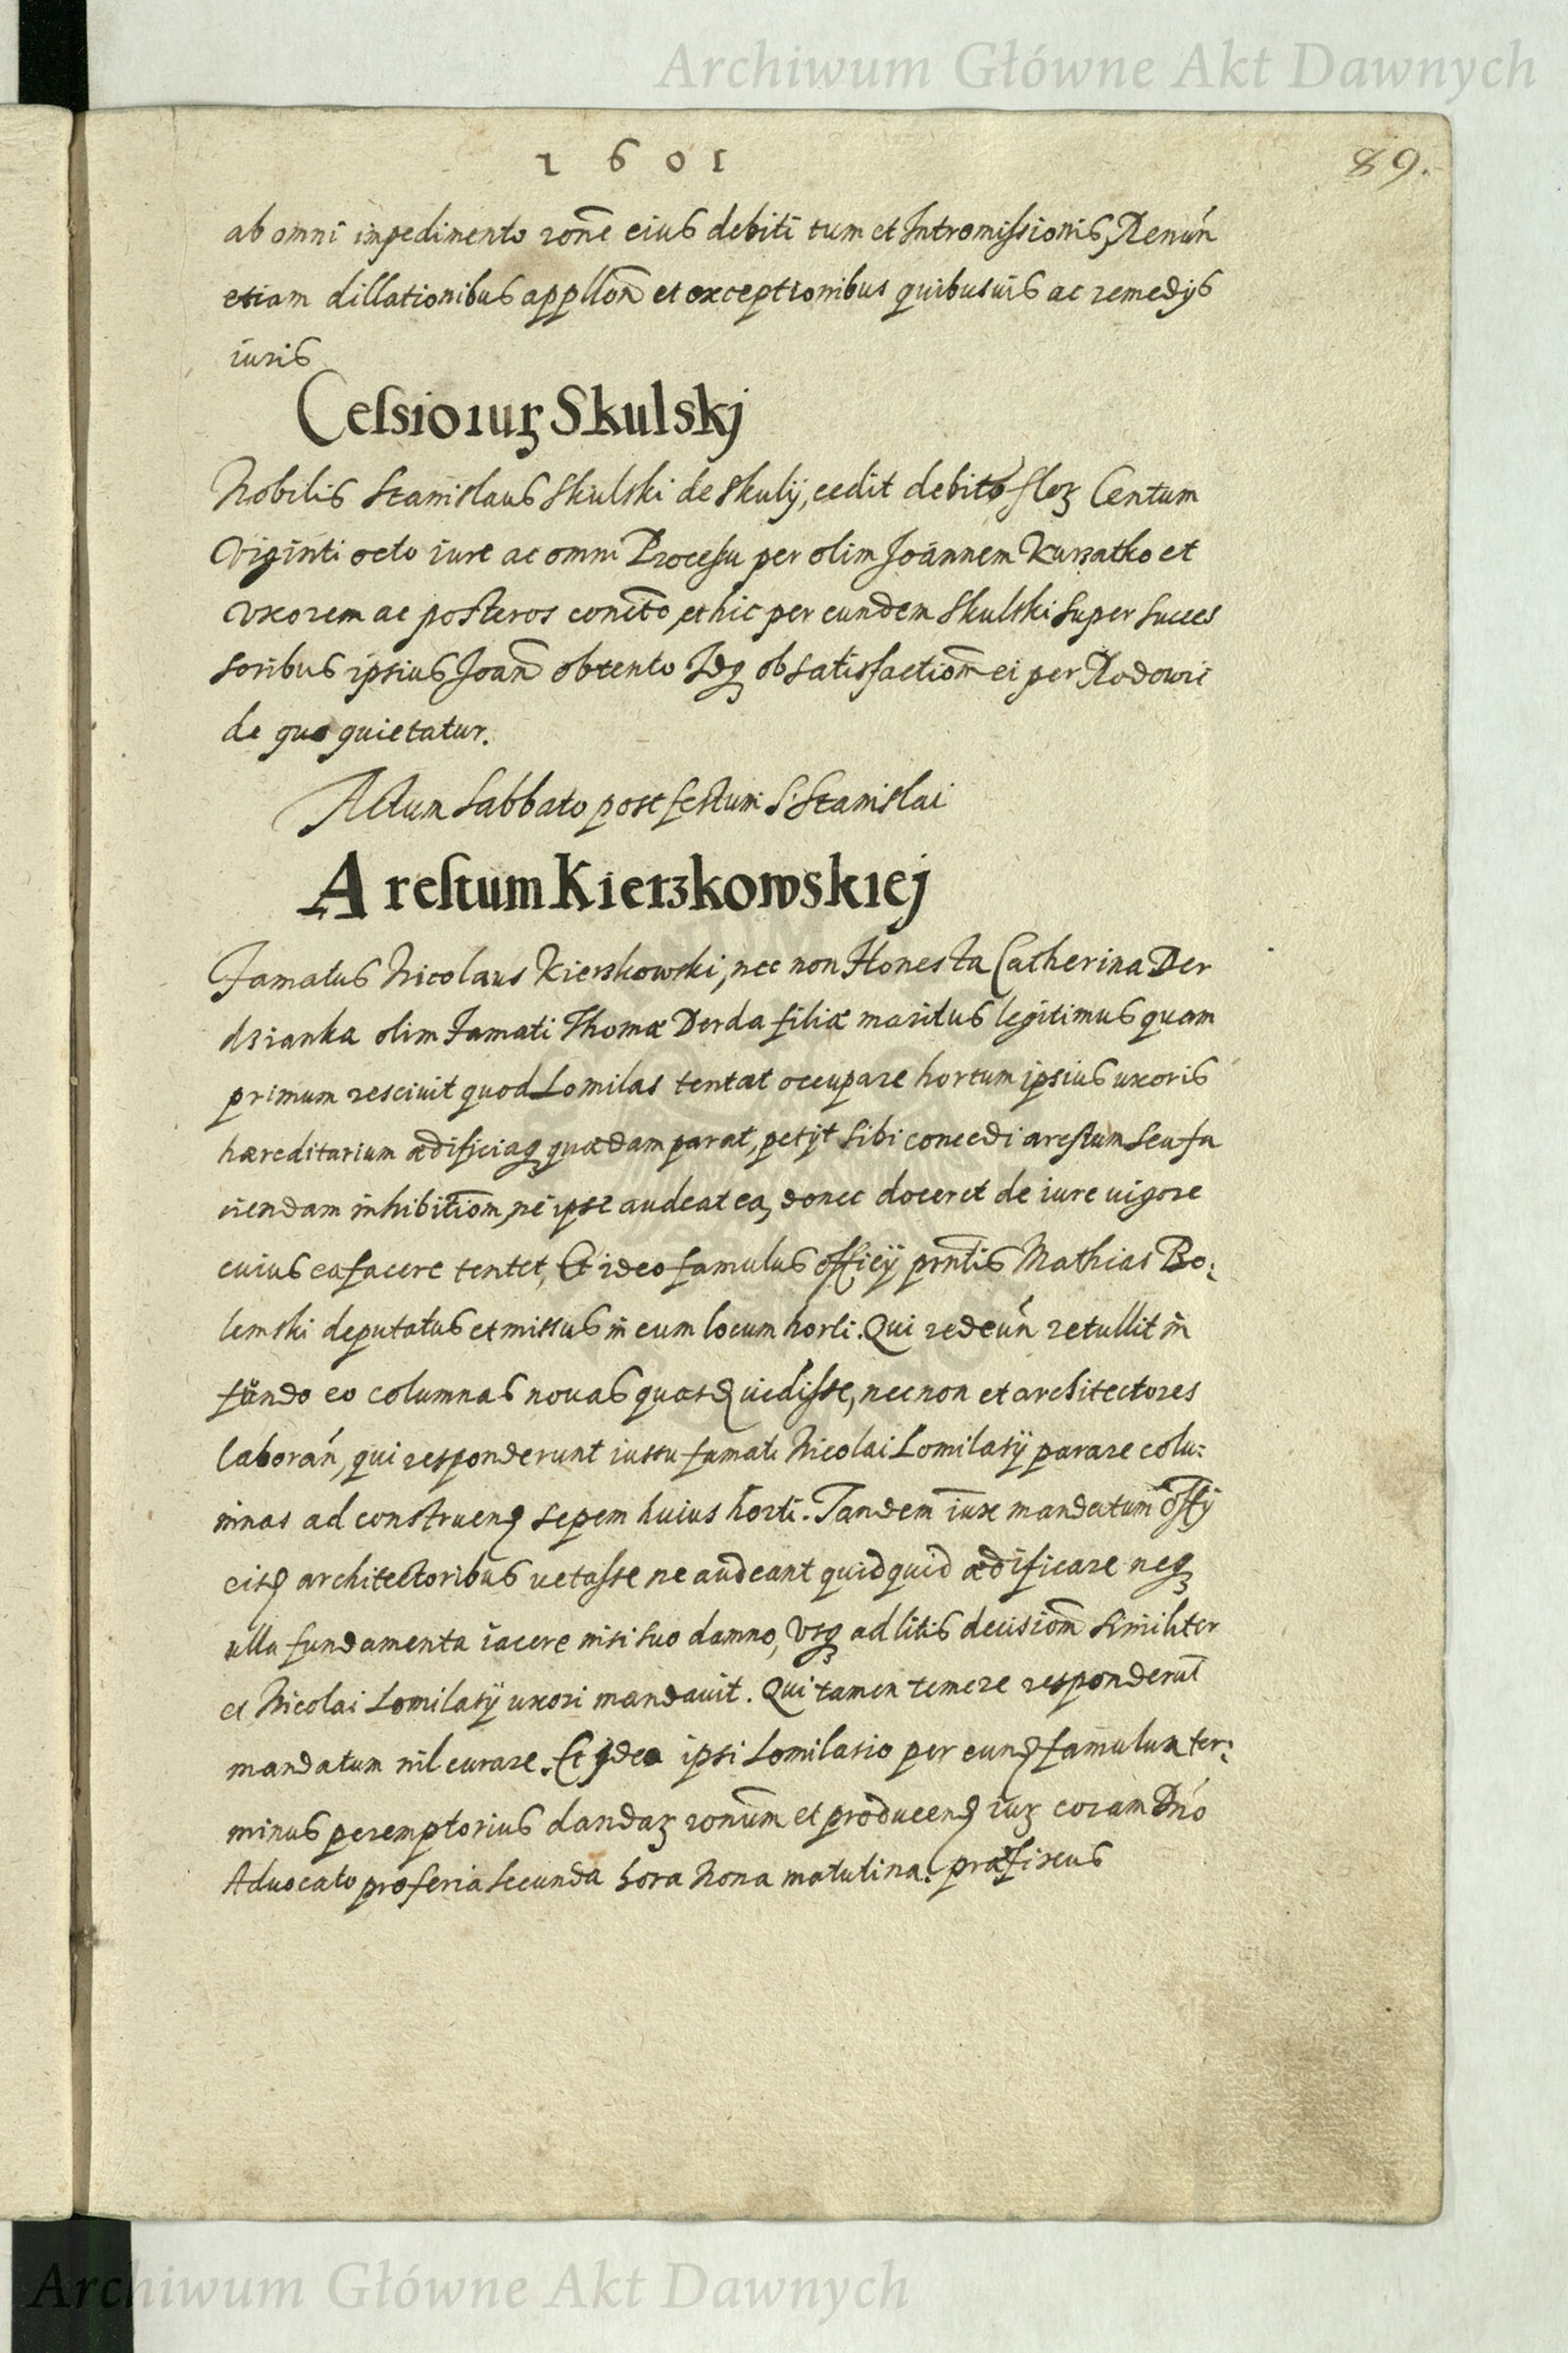 Archiwum Główne Akt Dawnych
1601
89.
ab omni impedimento rone eius debiti tum et Intromissionis, Renun
etiam dillationibus appllon et exceptionibus quibusuis ac remedijs
iuris
Cessio iur Skulskj
Nobilis Stanislaus Skulski de Skulÿ, cedit debito floz Centum
Viginti octo iure ac omni Processu per olim Joannem Kurzatko et
Uxorem ac posteros et hic per eundem Skulski super succes
soribus ipsius Joan obtento Idq ob satisfactiom ei per
de quo quietatur.
Actum Sabbato post festum S. Stanislai
Arestum Kierzkowskiej
Famatus Nicolaus Kierzkowski, nec non Honesta Catherina Der
dzianka olim Famati Thomæ Derda filiæ maritus legitimus quam
primum resciuit quod Lomilas tentat occupare hortum ipsius uxoris
hæreditarium ædificiaq quædam parat, petijt sibi concedi arestum seu fa
ciendam inhibitiom, ne ipse audeat ea, donec doceret de iure uigore
cuius ea facere tentet, Et ideo famulus officÿ pntis Mathias Bo:
lemski deputatus et missus in eum locum horti. Qui redeun retullit in
fundo eo columnas nouas quasd uidisse, necnon et architectores
laboran, qui responderunt iussu famati Nicolai Lomilasÿ parare colu:
mnas ad construend sepem huius horti. Tandem iuxe mandatum offÿ
eisd architectoribus uetasse ne audeant quidquid ædificare neq
ulla fundamenta iacere nisi suo damno, Usq ad litis decisiom similiter
et Nicolai Lomilasÿ uxori mandauit. Qui tamen temere responderut
mandatum nil curare. Et ideo ipsi Lomilasio per eund famulum ter:
minus peremptorius dandaz ronum et producend iuz coram Dno
Aduocato pro feria secunda hora Nona matutina. præfixus
Archiwum Główne Akt Dawnych